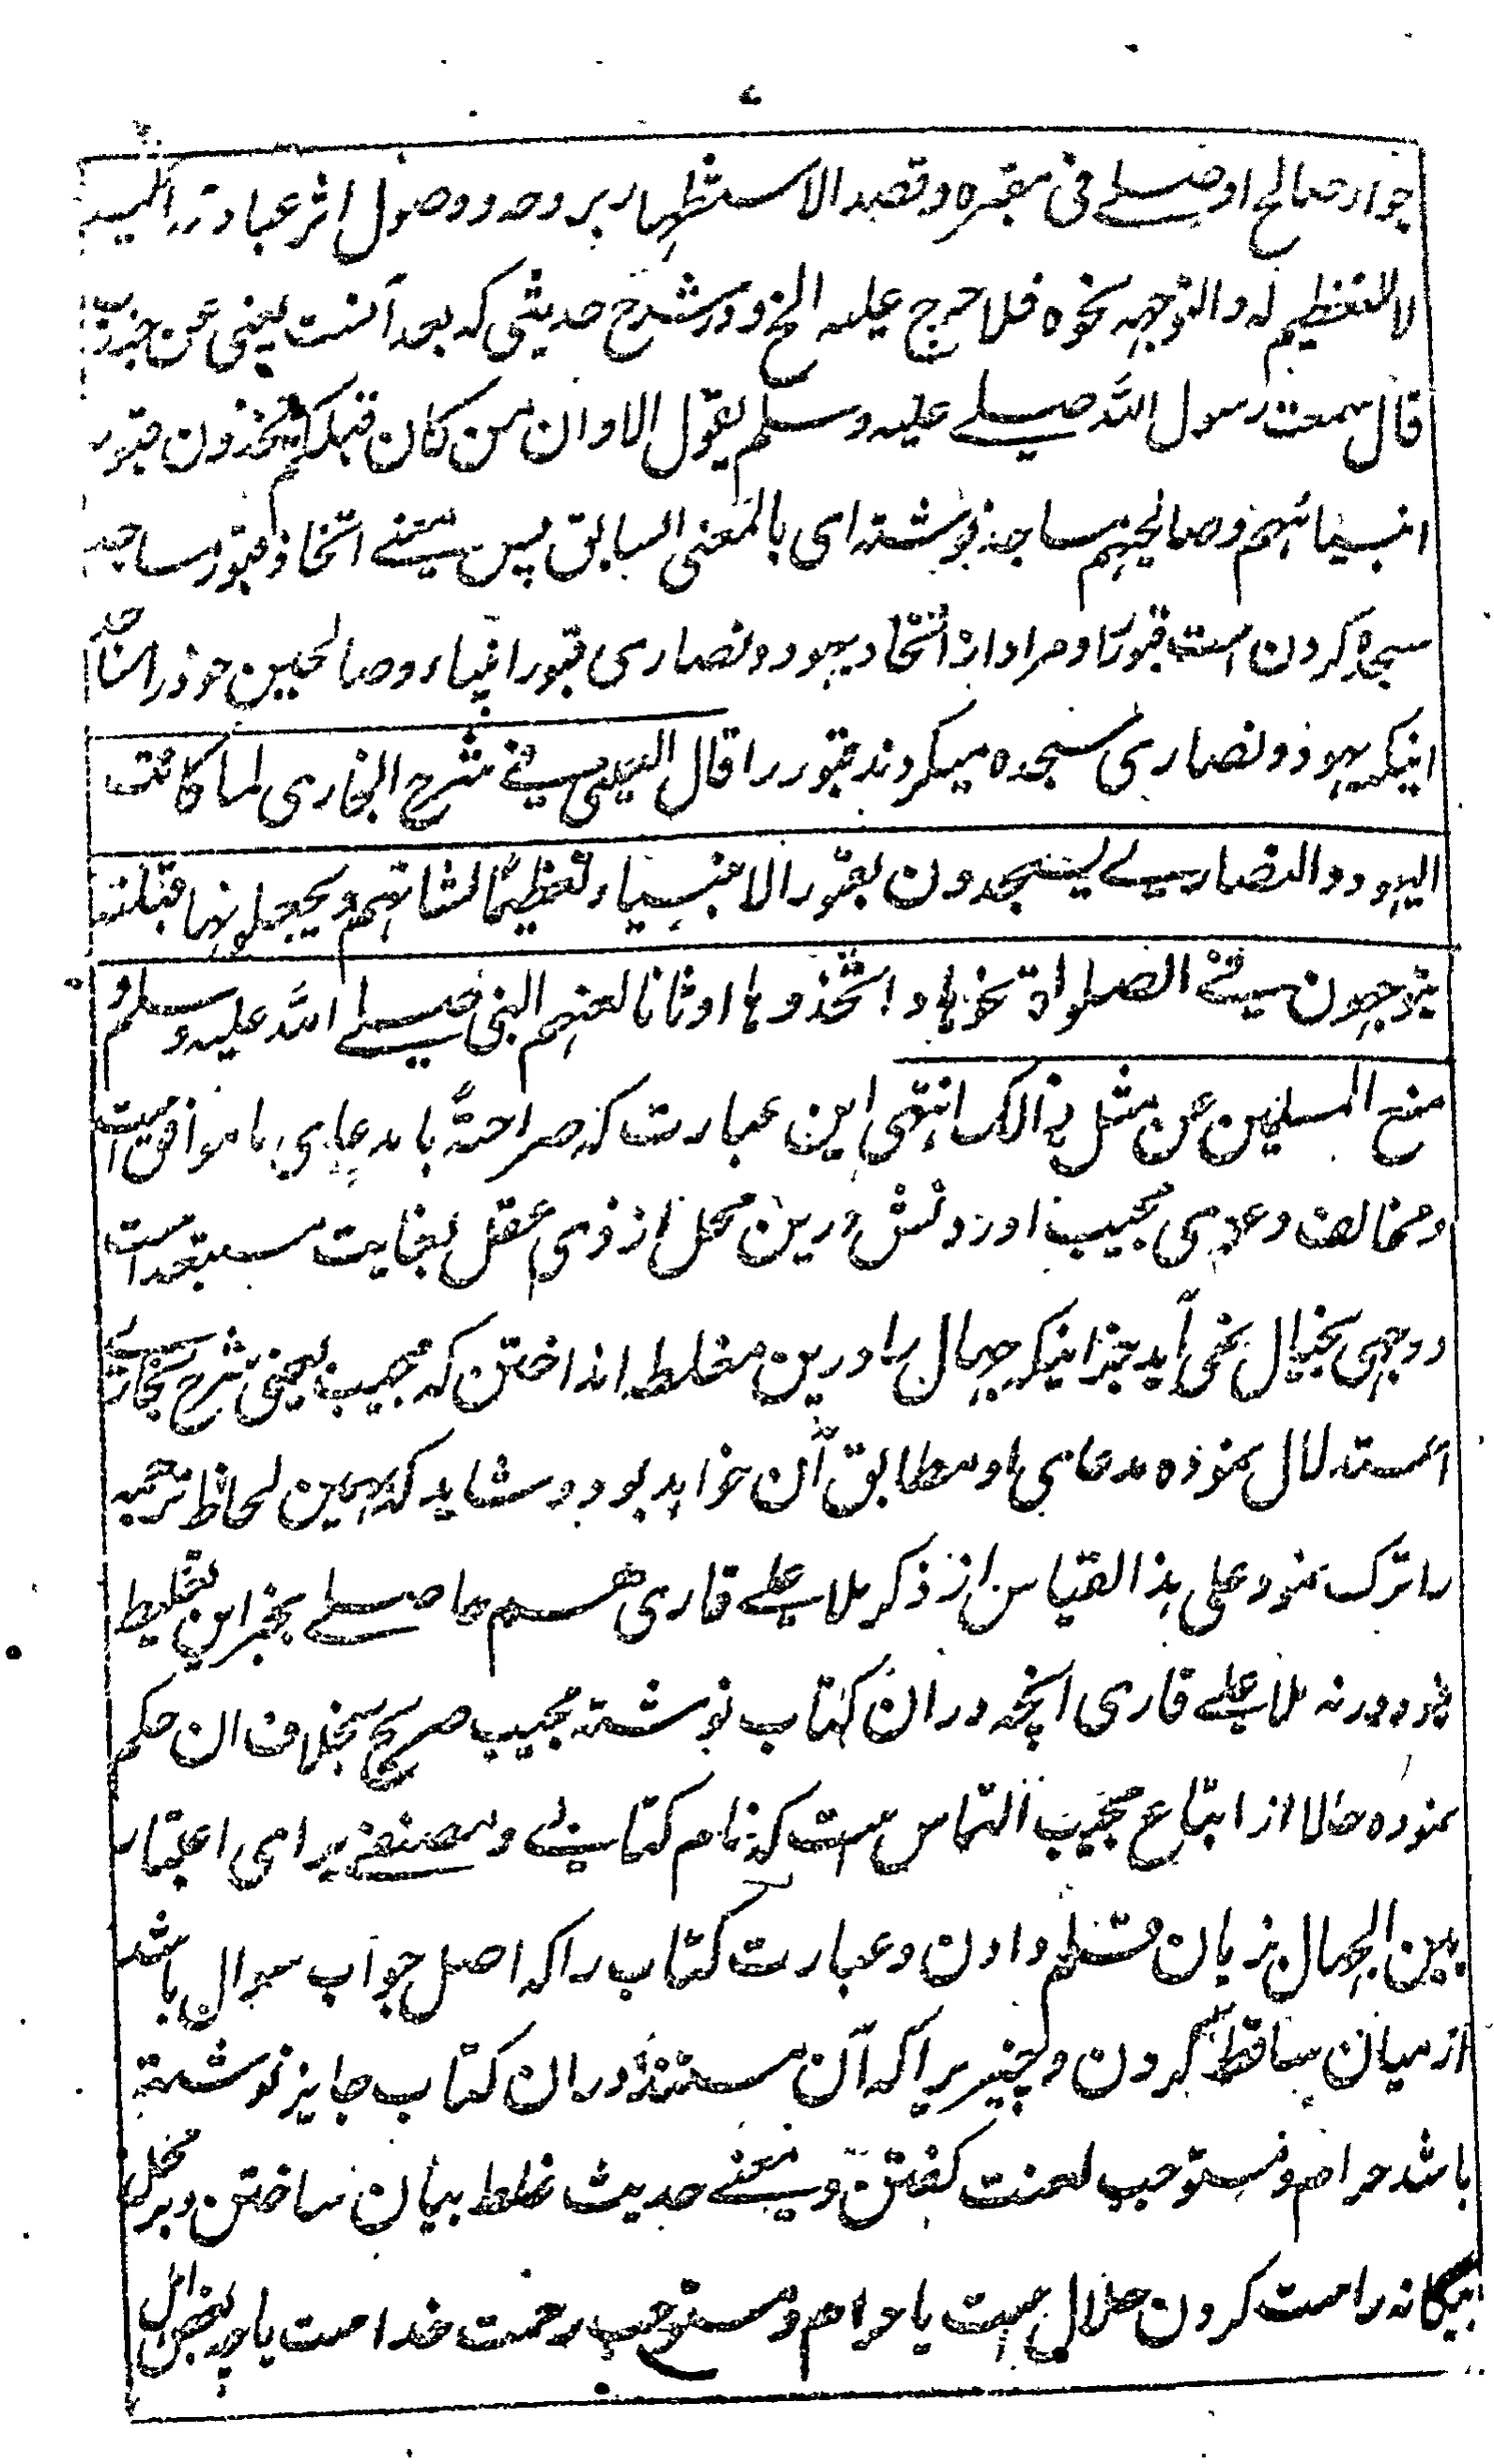 ۷
جوار صالح او صلے فی مقبره و قصد الاستظهار بروحه و وصول اثر عبادته الیه
لا للتعظیم له و التوجهه نحوه فلا حرج علیه الخ و در شرح حدیثی که بعد آنست یعنی عن جندب
قال سمعت رسول الله صلے علیه وسلم یقول الا و ان من کان قبلکم یتخذون قبور
انبیائهم و صالحیهم مساجد نوشته ای بالمعنی السابق پس معنے اتخاذ قبور مساجد
سجده کردن است قبور را و مراد از اتخاد یهود و نصاری قبور انبیاء و صالحین خود را مساجد
اینکه یهود و نصاری سجده میکردند قبور را قال العینی فے شرح البخاری لما کانت
الیهود و النصارے یسجدون بقبور الانبیاء تعظیمًا لشانهم و یجعلونها قبلته
یتوجهون فے الصلواة نحوها و اتخذوها اوثانا لعنهم النبی صلے الله علیه وسلم و
منع المسلمین عن مثل ذالک انتهی این عبارت که صراحةً با مدعای ما موافق است
و مخالف دعوی مجیب اوردنش درین محل از ذوی عقل بغایت مستبعد است
و وجهی بخیال نمی آید جز اینکه جهال را درین مغلطه انداختن که مجیب یعنی شرح بخارے
استدلال نموده مدعای او مطابق آن خواهد بود و شاید که بهمین لحاظ ترجمه
را ترک نمود علی هذا القیاس از ذکر ملا علے قاری هم حاصلے بجز این تغلیط
نبود ورنه ملا علے قاری انچه در ان کتاب نوشته مجیب صریح بخلاف ان حکم
نموده حالا از اتباع مجیب التماس ست که نام کتابے و مصنفے برای اعتبار
بین الجهال بزبان قلم دادن و عبارت کتاب را که اصل جواب سوال باشد
از میان ساقط کردن و چیزیرا که آن مستند در ان کتاب جایز نوشته
باشد حرام و مستوجب لعنت گفتن و معنے حدیث غلط بیان ساختن و بر محل
بیگانه راست کردن حلال ست یا حرام و مستوجب رحمت خداست یا چه بعض اهل